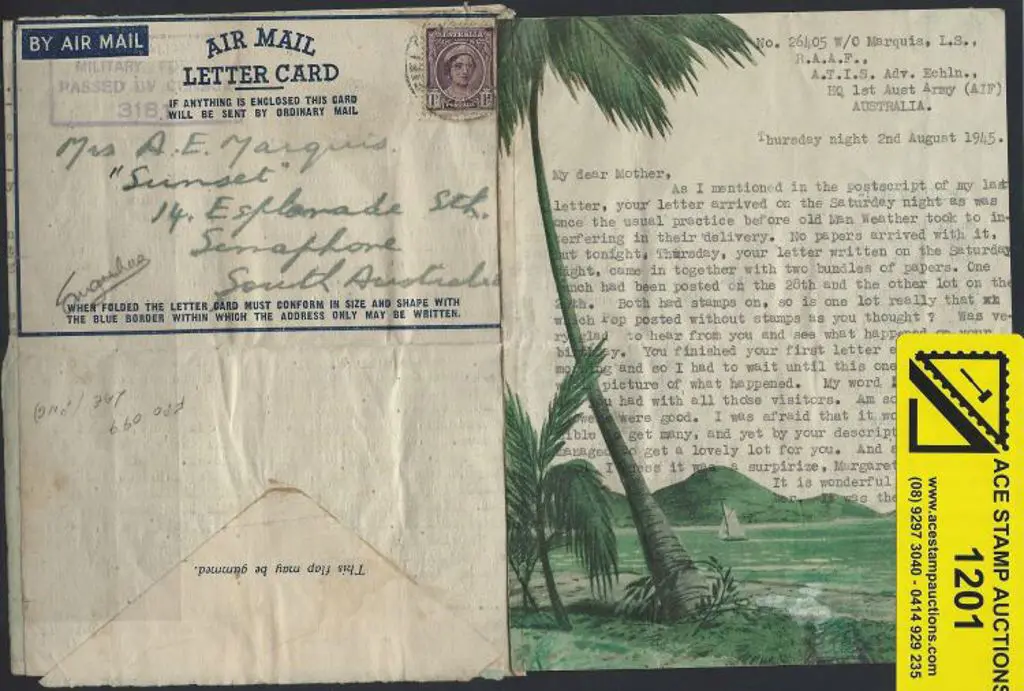 BY AIR MAIL
AIR MAIL
LETTER CARD
IF ANYTHING IS ENCLOSED THIS CARD
WILL BE SENT BY ORDINARY MAIL
MILITARY
PASSED BY
3181
AUSTRALIA
Mrs A. E. Marquis.
"Sunset"
14. Esplanade Sth.
Semaphore
South Australia
WHEN FOLDED THE LETTER CARD MUST CONFORM IN SIZE AND SHAPE WITH
THE BLUE BORDER WITHIN WHICH THE ADDRESS ONLY MAY BE WRITTEN.
This flap may be gummed.
No. 26405 W/O Marquis, L.S.,
R.A.A.F.,
A.T.I.S. Adv. Echln.,
HQ 1st Aust Army (AIF)
AUSTRALIA.
Thursday night 2nd August 1945.
My dear Mother,
As I mentioned in the postscript of my last
letter, your letter arrived on the Saturday night as was
once the usual practice before old Man Weather took to in-
terfering in their delivery. No papers arrived with it,
but tonight, Thursday, your letter written on the Saturday
night, came in together with two bundles of papers. One
bunch had been posted on the 26th and the other lot on the
Both had stamps on, so is one lot really that
which Pop posted without stamps as you thought ? Was ve-
ry glad to hear from you and see what happened on your
birthday. You finished your first letter
morning and so I had to wait until this one
picture of what happened. My word
you had with all those visitors. Am
were good. I was afraid that it
get many, and yet by your
managed to get a lovely lot for you. And
I guess it was a surpirize, Margaret
It is wonderful
her. It was the
ACE STAMP AUCTIONS
1201
www.acestampauctions.com
(08) 9297 3040 - 0414 929 235